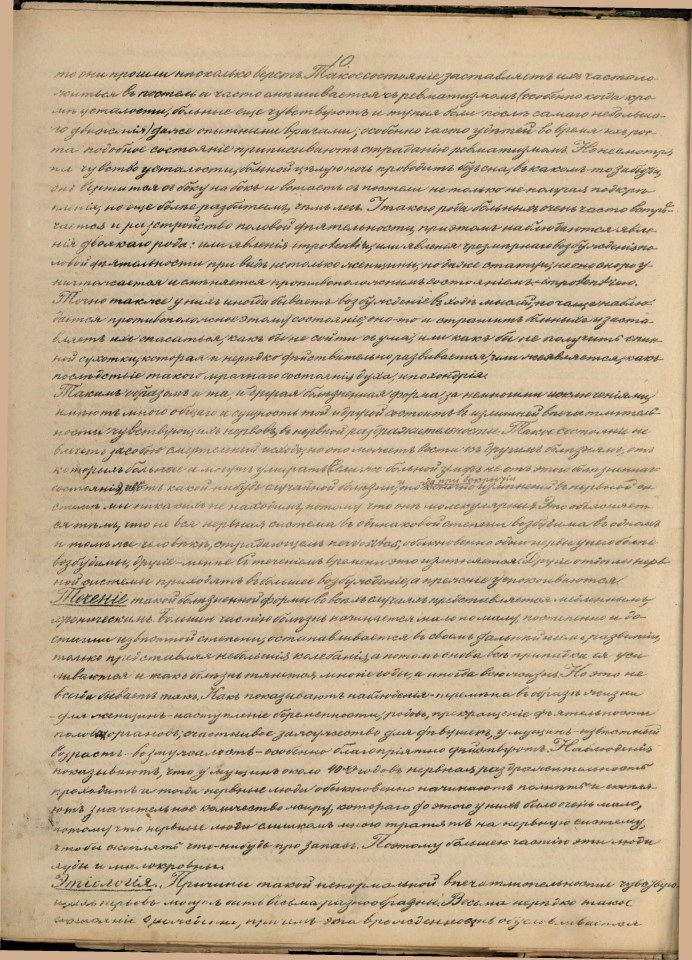 10.
то они прошли нѣсколько верстъ. Такое состояніе заставляетъ ихъ часто ло
житься въ постель и часто смѣшивается съ ревматизмомъ (особенно когда кро
мѣ усталости, больные еще чувствуютъ и тупыя боли послѣ самаго небольша
го движенія) даже опытными врачами; особенно часто у дѣтей во время ихъ рос
та подобное состояніе приписываютъ страданію ревматизмомъ. Но несмотря
на чувство усталости, больной цѣлую ночь проводитъ безъ сна, въ какомъ-то забытьи,
онъ вертится съ боку на бокъ и встаетъ съ постели не только не получая подкрѣ
пленія, но еще болѣе разбитымъ, чѣмъ легъ. У такого рода больныхъ очень часто встрѣ
чается и разстройство половой дѣятельности, при этомъ наблюдаются явле
нія двоякаго рода: или явленія impotentiae, или явленія чрезмѣрнаго возбужденія по
ловой дѣятельности при видѣ не только женщины, но даже статуи; но оно скоро у
ничтожается и смѣняется противоположнымъ состояніемъ - impotentiae.
Точно также у нихъ иногда бываетъ возбужденіе въ ходѣ мыслей, но чаще наблю
дается противоположное этому состояніе; оно-то и страшитъ больныхъ и заста
вляетъ ихъ опасаться, какъ бы не сойти съ ума, или какъ бы не получить спин
ной сухотки, которая и нерѣдко дѣйствительно развивается, или же является, какъ
послѣдствіе такого мрачнаго состоянія духа, ипохондрія.
Такимъ образомъ и та, и другая болѣзненная форма, за немногими исключеніями,
имѣютъ много общаго и сущность той и другой состоитъ въ излишней впечатлитель
ности чувствующихъ нервовъ, въ нервной раздражительности. Такое состояніе не
влечетъ за собою смертельный исходъ, но оно можетъ вести къ другимъ болѣзнямъ, отъ
которыхъ больные и могутъ умирать. Если же больной умретъ не отъ этого болѣзненнаго
состоянія, а отъ какой-нибудь случайной болѣзни, то
при вскрытіи
измѣненій въ нервной си
стемѣ мы никакихъ не находимъ, потому что онѣ молекулярны. Это объясняет
ся тѣмъ, что не вся нервная система въ одинаковой степени возбудима въ одномъ
и томъ же человѣкѣ, страдающемъ nervositas; обыкновенно одни нервы у него болѣе
возбудимы, другіе - менѣе. Съ теченіемъ времени это измѣняется. Другіе отдѣлы нерв
ной системы приходятъ въ большее возбужденіе, а прежніе успокоиваются.
Теченіе такой болѣзненной формы во всѣхъ случаяхъ представляется медленнымъ,
хроническимъ. Большею частію болѣзнь начинается мало по малу, постепенно и до
стигши извѣстной степени, останавливается въ своемъ дальнѣйшемъ развитіи,
только представляя небольшія колебанія, а потомъ снова всѣ припадки ея уси
ливаются и такъ болѣзнь тянется многіе годы, а иногда всю жизнь. Но это не
всегда бываетъ такъ. Какъ показываютъ наблюденія - перемѣна въ образѣ жизни
- для женщинъ - наступленіе беременности, родовъ, прекращеніе дѣятельности
половыхъ органовъ, счастливое замужество для дѣвушекъ, у мущинъ - извѣстный
возрастъ - возмужалость - особенно благопріятно дѣйствуютъ. Наблюденія
показываютъ, что у мущинъ около 40-а годовъ нервная раздражительность
проходитъ и тогда нервные люди обыкновенно начинаютъ полнѣть и скопля
ютъ значительное количество жиру, котораго до этого у нихъ было очень мало,
потому что нервные люди слишкомъ много тратятъ на нервную систему,
чтобы скоплять что-нибудь про запасъ. Поэтому большею частію эти люди
худы и малокровны.
Этіологія. Причины такой ненормальной впечатлительности чувствую
щихъ нервовъ могутъ быть весьма разнообразны. Весьма нерѣдко такое
состояніе врождено, причемъ эта врожденность обусловливается